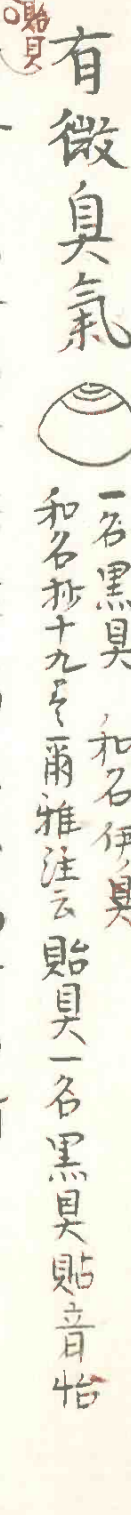 貽貝
有微臭氣
一名黑貝 和名伊貝
和名抄十九云爾雅注云貽貝一名黑貝貽音怡